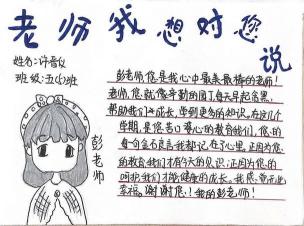 老师我想对您说
姓名:许馨
班级:五(4)班
彭老师,您是我心中最美最棒的老师!
老师,您就像辛勤的园丁,每天早起贪黑,
帮助我们成长,学到更多的知识。在这几个
学期,是您苦口婆心的教育我们,您的
每一句金石良言我都记在了心里,正因为您
的教会我们才有今天的见识;正因为您的
呵护我们才能健康的成长。我愿您永远
幸福。谢谢您!我的彭老师!
彭老师